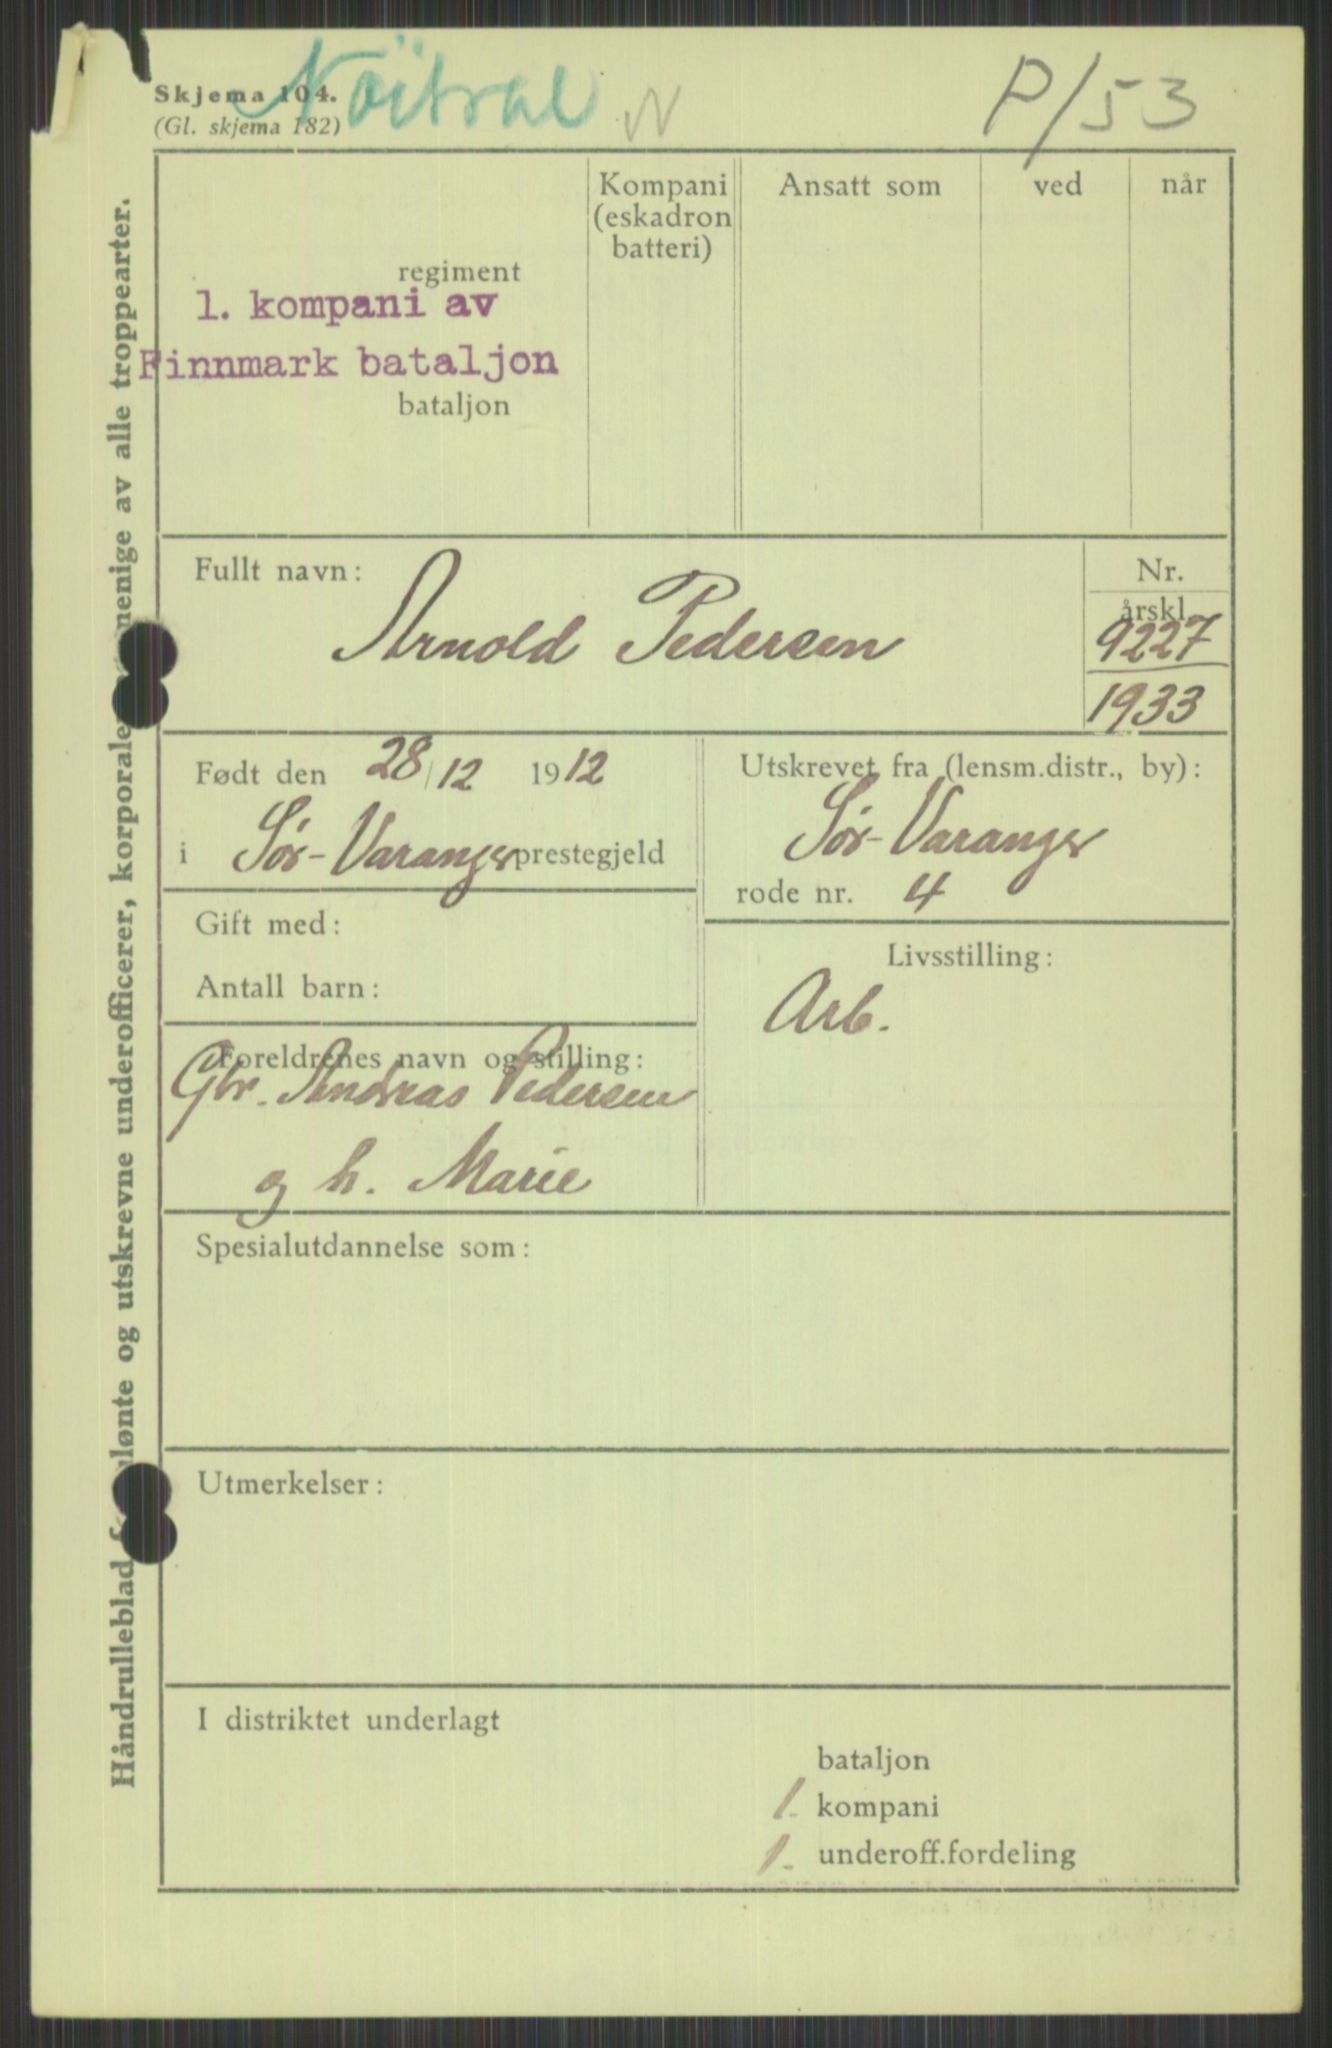 Skjema 104.
(Gl. skjema 182)
Nöitral N
P/53
Håndrulleblad lønte og utskrevne underofficerer, korporale menige av alle troppearter.
regiment
1. kompani av
Finnmark bataljon
bataljon
Kompani
(eskadron
batteri)
Ansatt som
ved
når
Fullt navn:
Arnold Pedersen
Nr.
årskl.
9227
1933
Født den 28/12 1912
i Sør-Varanger prestegjeld
Utskrevet fra (lensm.distr., by):
Sør-Varanger
rode nr. 4
Gift med:
Antall barn:
Livsstilling:
Arb.
Foreldrenes navn og stilling:
Gbr. Andreas Pedersen
og h. Marie
Spesialutdannelse som:
Utmerkelser:
I distriktet underlagt
bataljon
1. kompani
1. underoff.fordeling